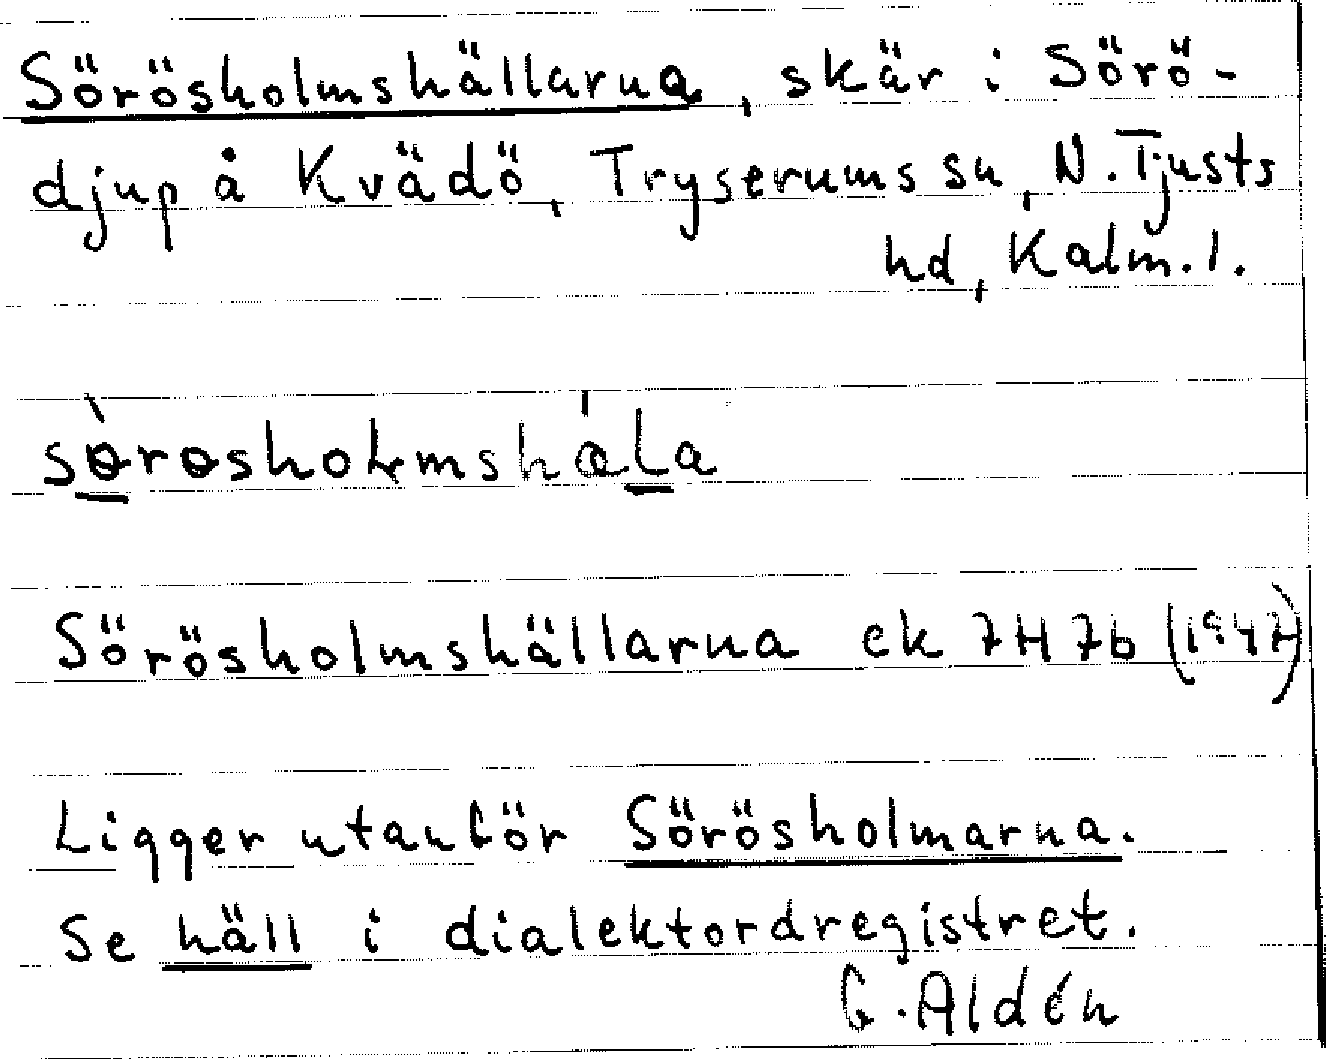 Sörösholmshällarna, skär i Sörö-
djup å Kvädö, Tryserums sn, N. Tjusts
hd, Kalm. l.
Sörösholmshällarna ek 7H7b (1947)
Ligger utanför Sörösholmarna.
Se häll i dialektordregistret.
G. Aldén